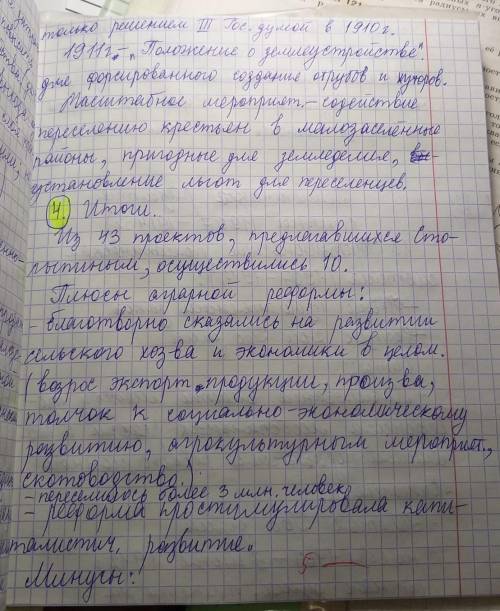 только решением III Гос. думой в 1910 г.
1911 г. - „Положение о землеустройстве".
для форсированного создание отрубов и хуторов.
Масштабное мероприят. - содействие
переселению крестьян в малозаселённые
районы, пригодные для земледелия,
установление льгот для переселенцев.
4. Итоги.
Из 43 проектов, предлагавшихся Сто-
лыпиным, осуществились 10.
Плюсы аграрной реформы:
- благотворно сказались на развитии
сельского хоз-ва и экономики в целом.
(возрос экспорт продукции, произ-ва,
толчок к социально-экономическому
развитию, агрокультурным мероприят.,
скотоводство.)
- переселилось более 3 млн. человек
- реформа простимулировала капи-
талистич. развитие.
Минусы:
5